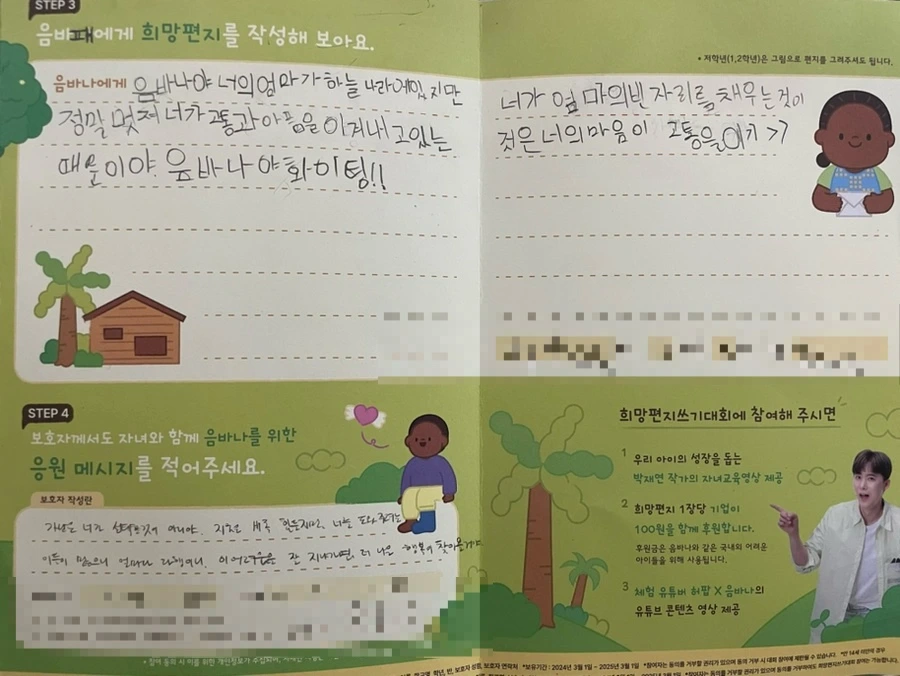 STEP 3
음바나에게 희망편지를 작성해 보아요.
• 저학년(1,2학년)은 그림으로 편지를 그려주셔도 됩니다.
음바나에게 음바나야 너의 엄마가 하늘나라에 있지만
정말 멋져 너가 고통과 아픔을 이겨내고 있는
때문이야. 음바나야 화이팅!!
너가 엄마의 빈 자리를 채우는 것이
것은 너의 마음이 고통을
STEP 4
보호자께서도 자녀와 함께 음바나를 위한
응원 메시지를 적어주세요.
보호자 작성란
가난은 너가 선택한것이 아니야. 지금은 비록 힘들지만, 너를 도와주려는
이들이 많으니 얼마나 다행이니. 이 어려움을 잘 지내가면, 더 나은 행복이 찾아올거야
희망편지쓰기대회에 참여해 주시면
1 우리 아이의 성장을 돕는
박재연 작가의 자녀교육영상 제공
2 희망편지 1장당 기업이
100원을 함께 후원합니다.
후원금은 음바나와 같은 국내외 어려운
아이들을 위해 사용됩니다.
3 체험 유튜버 허팝 X 음바나의
유튜브 콘텐츠 영상 제공
학년, 반, 보호자 성명, 보호자 연락처 *보유기간 : 2024년 3월 1일 ~ 2025년 3월 1일